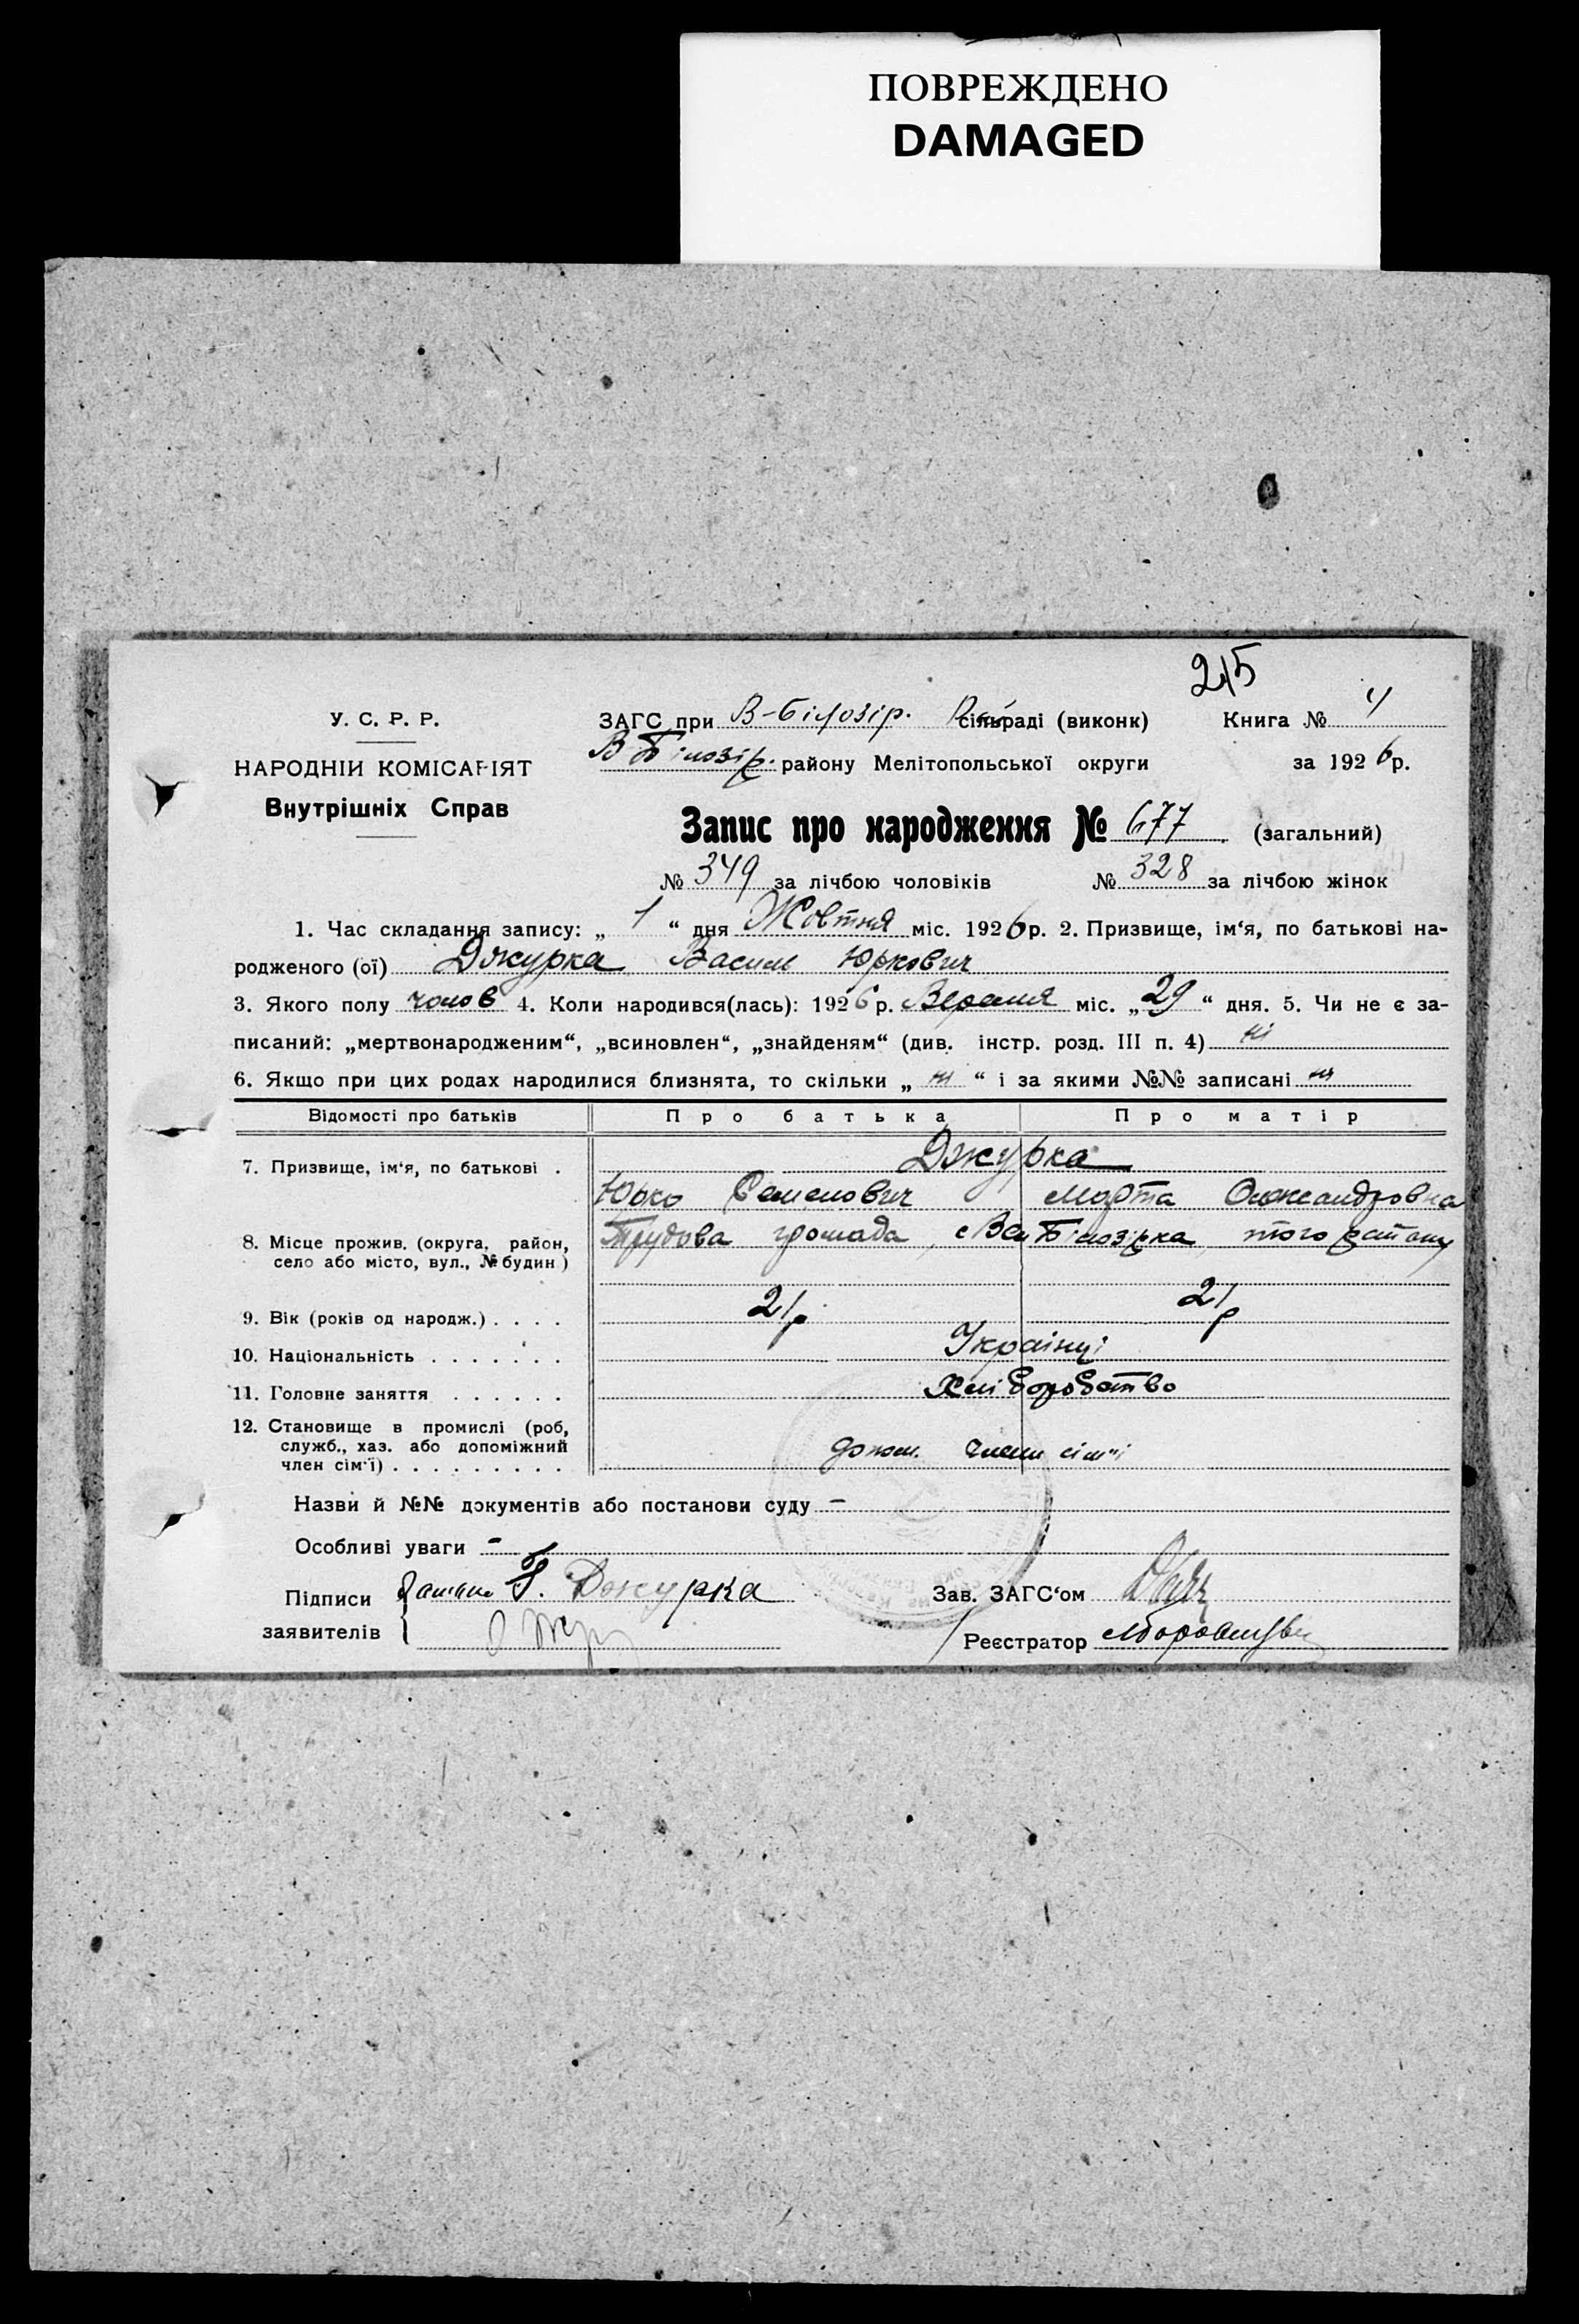 ПОВРЕЖДЕНО
DAMAGED
215
У. С. Р. Р.
ЗАГС при В-Білозір. сільраді (виконк) Книга № 4
НАРОДНІЙ КОМІСАРІЯТ
В Білозір. району Мелітопольської округи за 1926 р.
Внутрішніх Справ
Запис про народження № 677 (загальний)
№ 349 за лічбою чоловіків № 328 за лічбою жінок
1. Час складання запису: „ 1 “ дня Жовтня міс. 1926 р. 2. Призвище, ім‘я, по батькові на-
родженого (ої) Джурка Василь Юркович
3. Якого полу чолов 4. Коли народився(лась): 1926 р. Вересня міс. „ 29 “ дня. 5. Чи не є за-
писаний: „мертвонародженим“, „всиновлен“, „знайденям“ (див. інстр. розд. III п. 4) ні
6. Якщо при цих родах народилися близнята, то скільки „ ні “ і за якими №№ записані ні
Відомості про батьків Про батька Про матір
7. Призвище, ім‘я, по батькові . Джурка
Юрко Семенович Марта Олександровна
8. Місце прожив. (округа, район, село або місто, вул., № будин) Трудова громада, с Вел Білозірка того
9. Вік (років од народж.) . . . . 21 р 21 р
10. Національність . . . . . . . Українці
11. Головне заняття . . . . . . Хліборобство
12. Становище в промислі (роб,
служб., хаз. або допоміжний
член сім‘ї) . . . . . . . . . допом. члени сім"ї
Назви й №№ документів або постанови суду –
Особливі уваги –
Підписи Джурка Зав. ЗАГС‘ом
заявителів Реєстратор